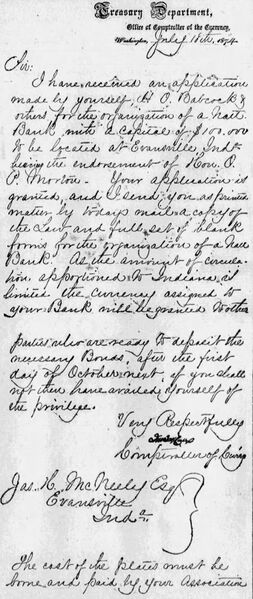 Treasury Department,
Office of Comptroller of the Currency,
Washington, July 18th, 1874
Sir:
I have received an application
made by yourself, H. O. Babcock &
others for the organization of a Natl
Bank with a capital of $100.000
to be located at Evansville Inda
being the endorsement of Hon. O.
P. Morton. Your application is
granted, and I send you, as printed
matter by today's mail a copy of
the Law and full set of blank
forms for the organization of a Natl
Bank. As the amount of circu-
lation apportioned to Indiana is
limited the currency assigned to
your Bank will be granted to other
parties who are ready to deposit the
necessary Bonds, after the first
day of October next, if you shall
not then have availed yourself of
the privilege.
Very Respectfully
Comptroller of Cur'cy
Jas. H. McNeely Esq
Evansville
Inda.
The cost of the plates must be
borne and paid by your Association